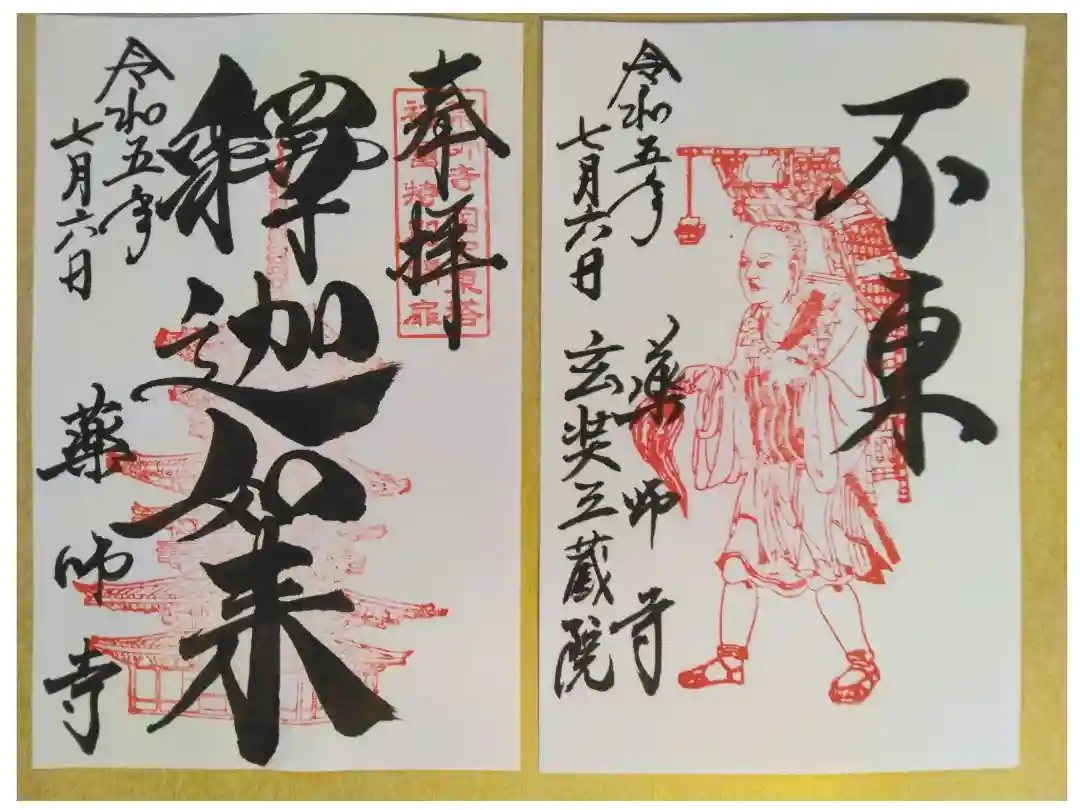 不東
薬師寺
玄奘三蔵院
令和五年
七月六日
奉拝
釋迦如来
薬師寺
令和五年
七月六日